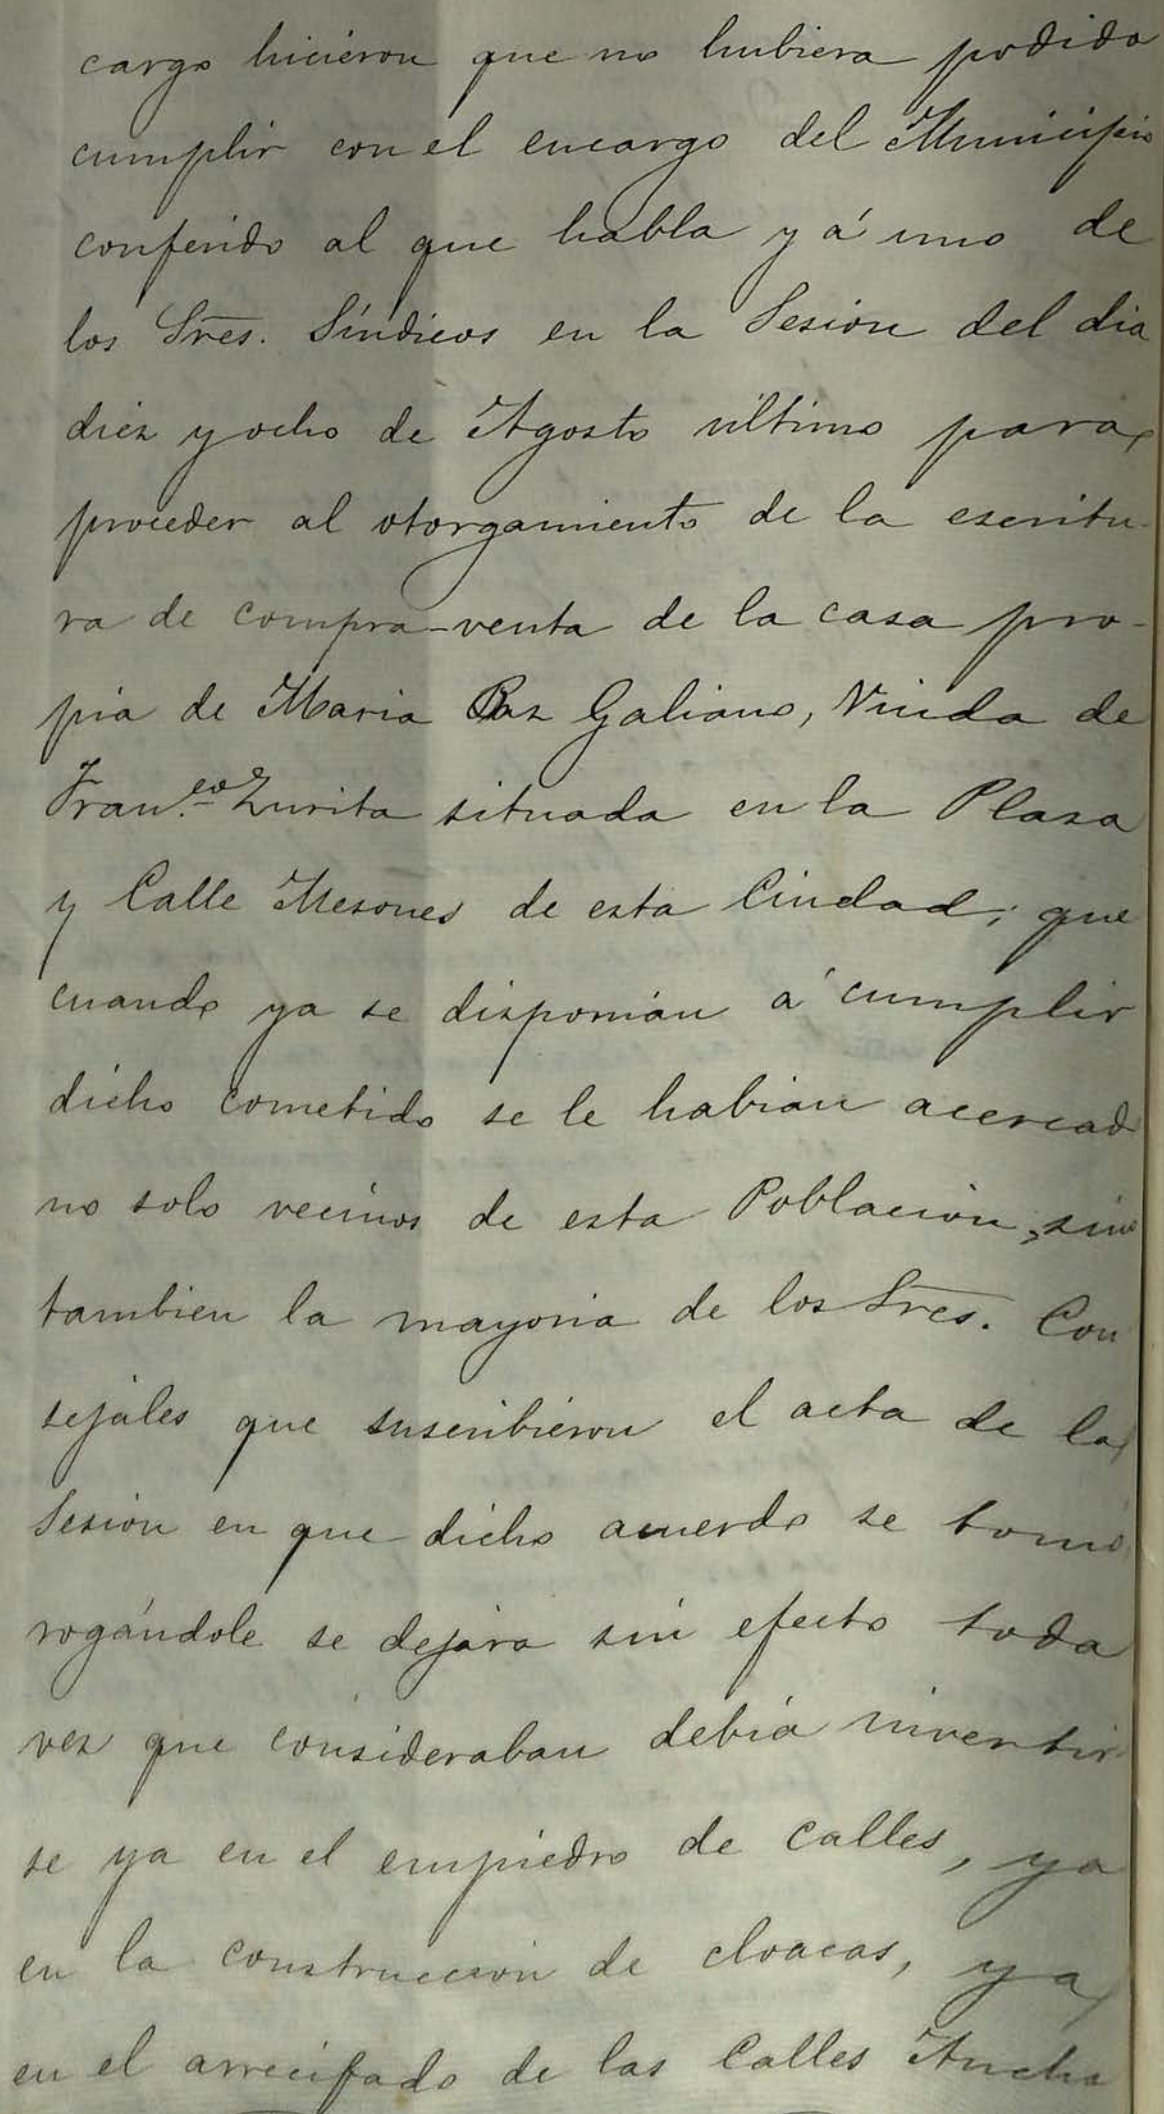 cargo hicieron que no hubiera podido
cumplir con el encargo del Municipio
conferido al que habla y á uno de
los Sres. Síndicos en la Sesion del dia
diez y ocho de Agosto último para
proceder al otorgamiento de la escritu-
ra de compra-venta de la casa pro-
pia de Maria Paz Galiano, Viuda de
Fran.co Zurita situada en la Plaza
y Calle Mesones de esta Ciudad; que
cuando ya se disponian á cumplir
dicho cometido se le habian acercad
no solo vecinos de esta Poblacion, sino
tambien la mayoria de los Sres. Con
sejales que suscribieron el acta de la
Sesion en que dicho acuerdo se tomó
rogándole se dejara sin efecto toda
vez que consideraban debia invertir
se ya en el empiedro de calles, ya
en la construccion de cloacas, ya
en el arrecifado de las Calles Ancha